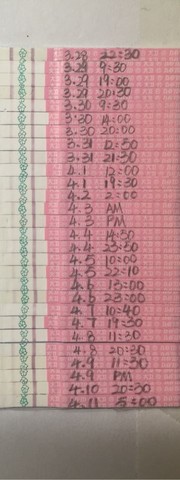 3.28 22:30
3.29 9:30
3.29 19:00
3.29 20:30
3.30 9:30
3.30 14:00
3.30 20:00
3.31 12:50
3.31 21:30
4.1 12:00
4.1 19:30
4.2 2:00
4.3 AM
4.3 PM
4.4 14:50
4.4 23:50
4.5 10:00
4.5 22:10
4.6 13:00
4.6 23:00
4.7 10:40
4.7 19:30
4.8 11:30
4.8 20:30
4.9 11:30
4.9 PM
4.10 20:30
4.11 5:00